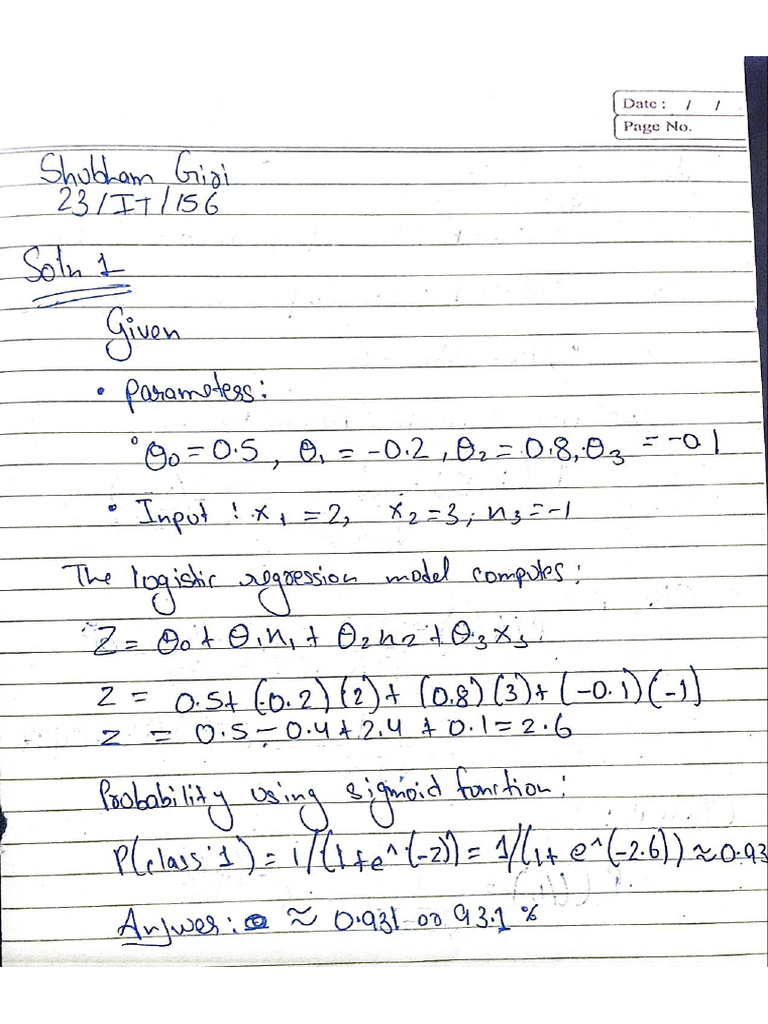 Date : / /
Page No.
Shubham Giri
23/IT/156
Soln 1
Given
• Parameters:
° θ0 = 0.5, θ1 = -0.2, θ2 = 0.8, θ3 = -0.1
• Input : x1 = 2, x2 = 3, x3 = -1
The logistic regression model computes:
Z = θ0 + θ1x1 + θ2x2 + θ3x3
z = 0.5 + (-0.2)(2) + (0.8)(3) + (-0.1)(-1)
z = 0.5 - 0.4 + 2.4 + 0.1 = 2.6
Probability using sigmoid function:
P(class 1) = 1/(1+e^(-z)) = 1/(1+ e^(-2.6)) ≈ 0.93
Answer: ≈ 0.931 or 93.1 %